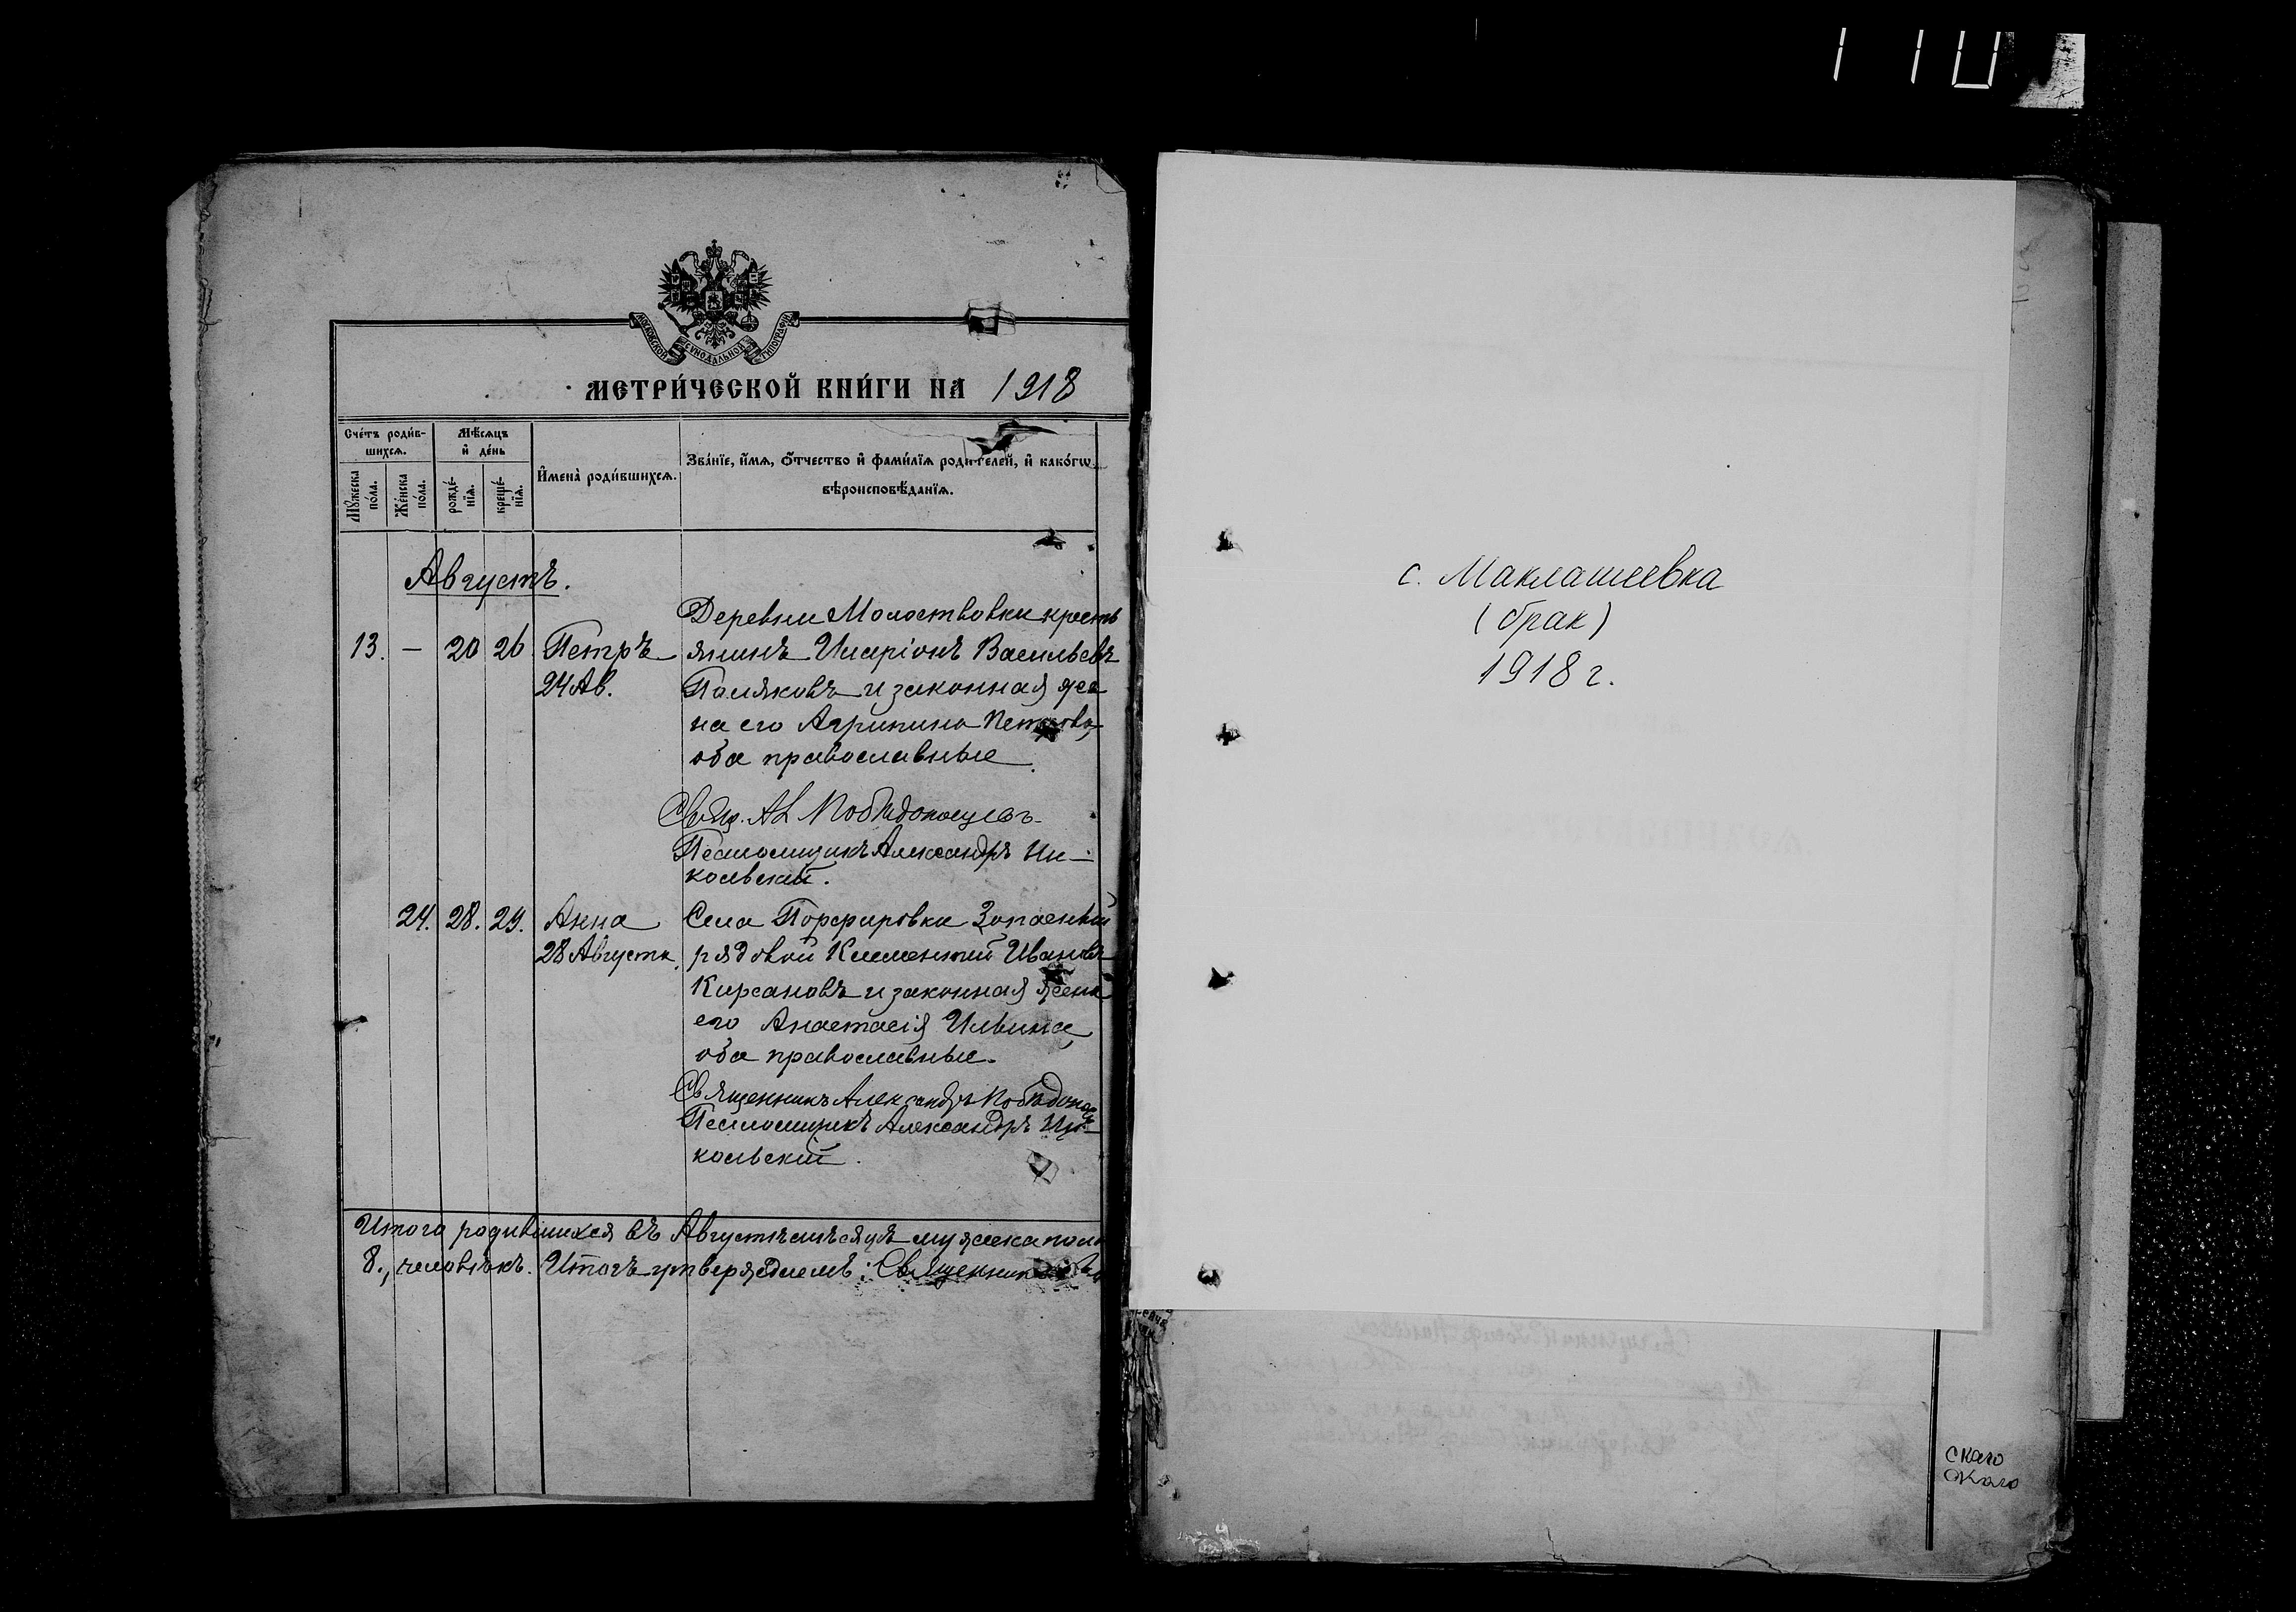 1 10
МОСКОВСКОЙ СѴНОДАЛЬНОЙ ТИПОГРАФІИ
МЕТРИ́ЧЕСКОЙ КНИ́ГИ НА 1918
Сче́тъ роди́в-
шихсѧ.
Мꙋ́жеска по́ла.
Же́нска по́ла.
Мѣ́сѧцъ
и҆ де́нь
рожде́-
нїѧ.
креще́-
нїѧ.
И҆мена̀ роди́вшихсѧ.
Зва́нїе, и҆́мѧ, ѻ҆́тчество и҆ фами́лїѧ роди́телей, и҆ како́гѡ
вѣроисповѣ́данїѧ.
Августъ.
Деревни Молоствовки кресть
13. — 20 26 Петръ янинъ Иларіонъ Васильевъ
24 Ав. Поляковъ и законная же
на его Агрипина Петрова,
оба православные.
Свящ. Ал Побѣдоносцевъ
Псаломщикъ Александръ Ни-
кольскій.
24. 28. 29. Анна Села Порфировки Запасный
28 Августа. рядовой Климентій Ивановъ
Кирсановъ и законная жена
его Анастасія Ильина,
оба православные.
Священникъ Александръ Побѣдонос
Псаломщикъ Александръ Ни-
кольскій.
Итого родившихся въ Августѣ мѣсяцѣ мужеска пола
8., человѣкъ. Итогъ утверждаемъ: Священникъ
с. Маклашеевка
(брак)
1918 г.
скаго
скаго